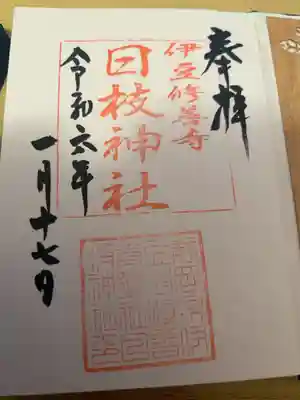 奉拝
伊豆修善寺
日枝神社
令和六年
一月十七日